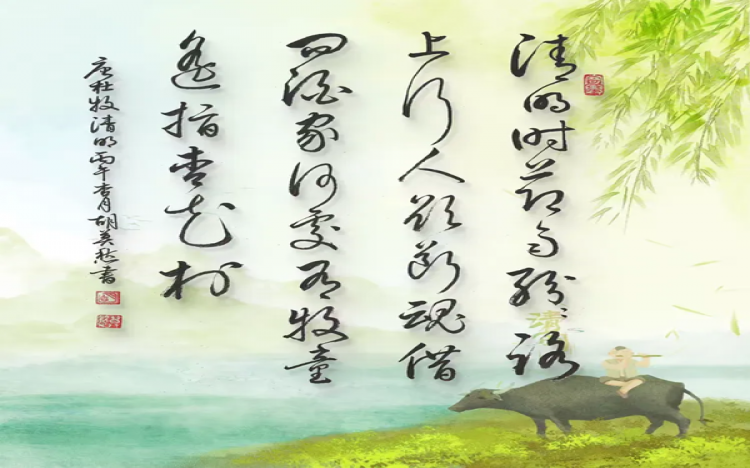 清明时节雨纷々路
上行人欲断魂借
问酒家何处有牧童
遥指杏花村
唐杜牧清明丙午杏月胡英松书
清